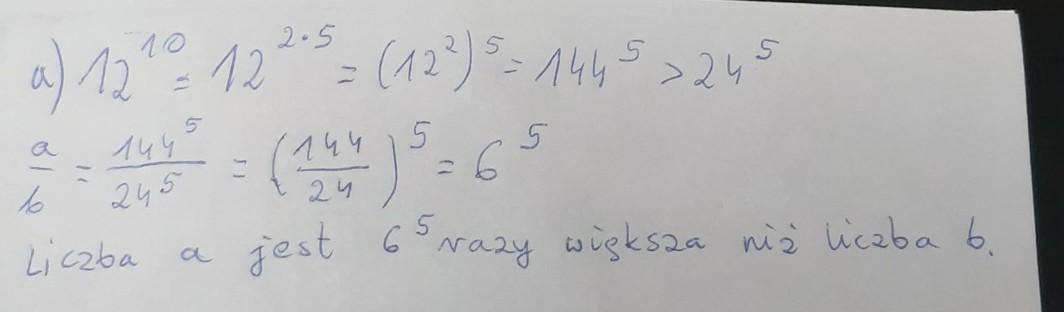 a) 12^10 = 12^2·5 = (12^2)^5 = 144^5 > 24^5
a/b = 144^5/24^5 = (144/24)^5 = 6^5
Liczba a jest 6^5 razy większa niż liczba b.